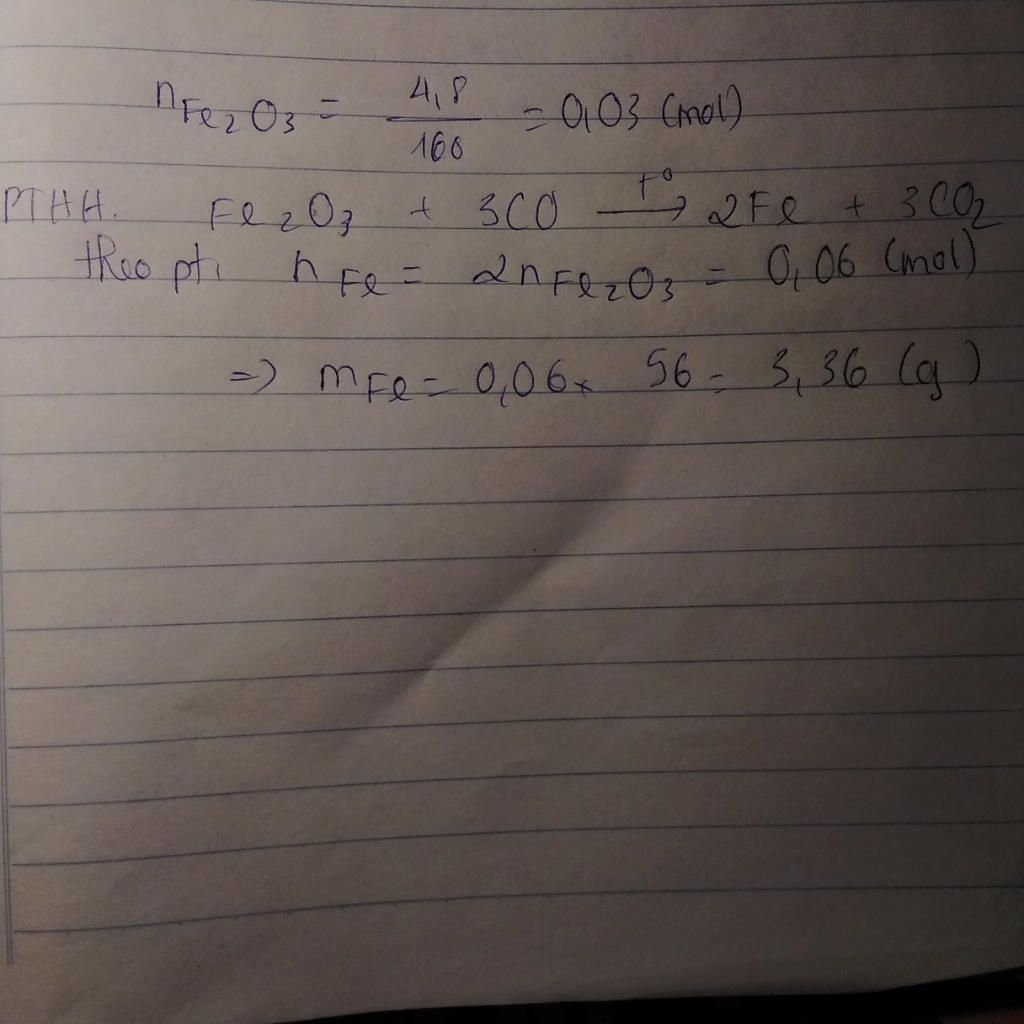 nFe₂O₃ = 4,8/160 = 0,03 (mol)
PTHH. Fe₂O₃ + 3CO –t°→ 2Fe + 3CO₂
theo pt: nFe = 2nFe₂O₃ = 0,06 (mol)
=> mFe = 0,06 x 56 = 3,36 (g)